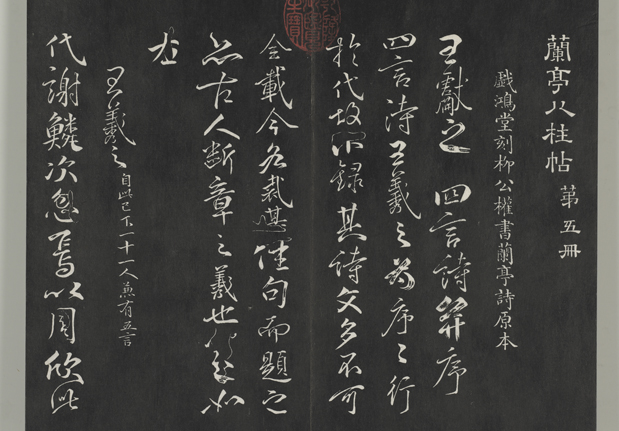 蘭亭八柱帖 第五冊
戲鴻堂刻柳公權書蘭亭詩原本
王獻之 四言詩并序
四言詩王義之為序之行
於代故不錄其詩文多不可
全載今各裁其佳句而題之
亦古人斷章之義也
右
王羲之自此已下十一人兼有五言
代謝鱗次忽焉以周欣此